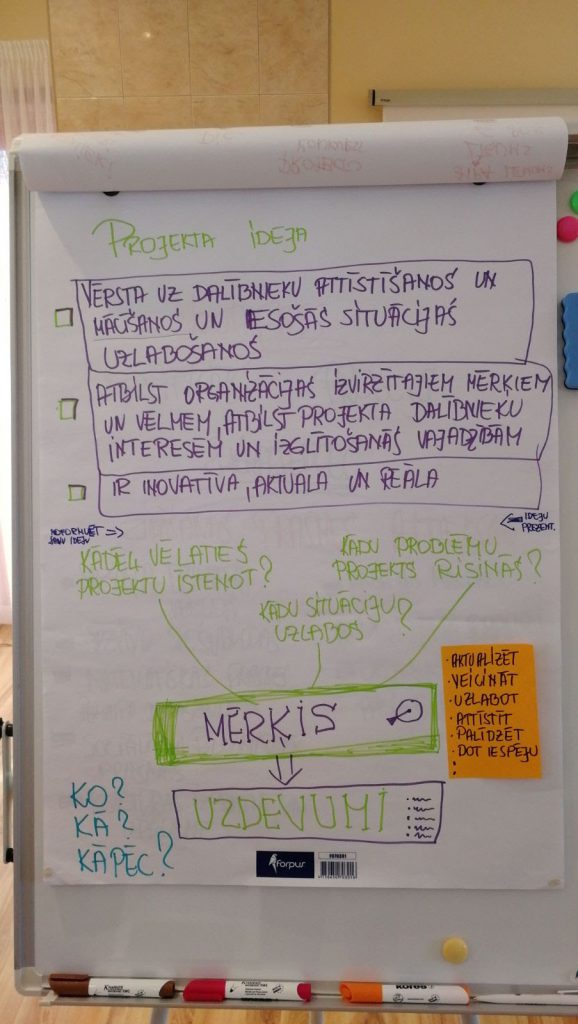 PROJEKTA IDEJA
VĒRSTA UZ DALĪBNIEKU ATTĪSTĪŠANOS UN
MĀCĪŠANOS UN ESOŠĀS SITUĀCIJAS
UZLABOŠANOS
ATBILST ORGANIZĀCIJAS IZVIRZĪTAJIEM MĒRĶIEM
UN VĒLMĒM, ATBILST PROJEKTA DALĪBNIEKU
INTERESĒM UN IZGLĪTOŠANĀS VAJADZĪBĀM
IR INOVATĪVA, AKTUĀLA UN REĀLA
NOFORMULĒT
SAVU IDEJU
IDEJU
PREZENT.
KĀDĒĻ VĒLATIES
PROJEKTU ĪSTENOT?
KĀDU PROBLĒMU
PROJEKTS RISINĀS?
KĀDU SITUĀCIJU
UZLABOS?
MĒRĶIS
· AKTUALIZĒT
· VEICINĀT
· UZLABOT
· ATTĪSTĪT
· PALĪDZĒT
· DOT IESPĒJU
UZDEVUMI
KO?
KĀ?
KĀPĒC?
forpus
Kores